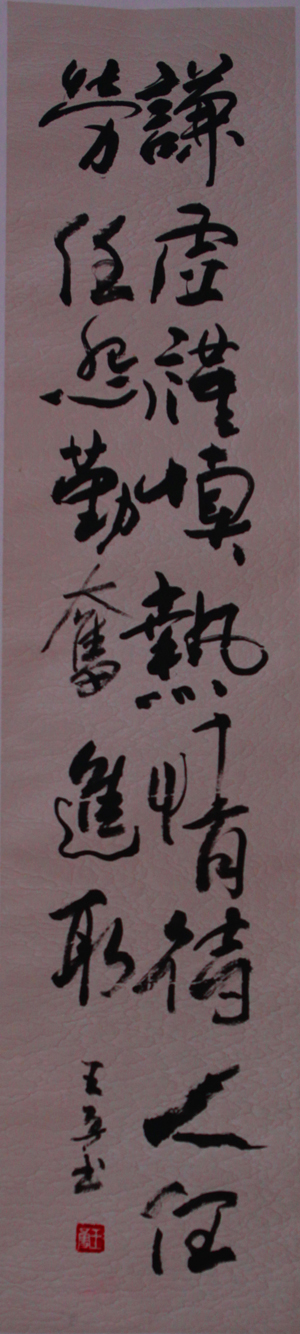 謙虚謹慎熱情待人任
勞任怨勤奮進取
王
书